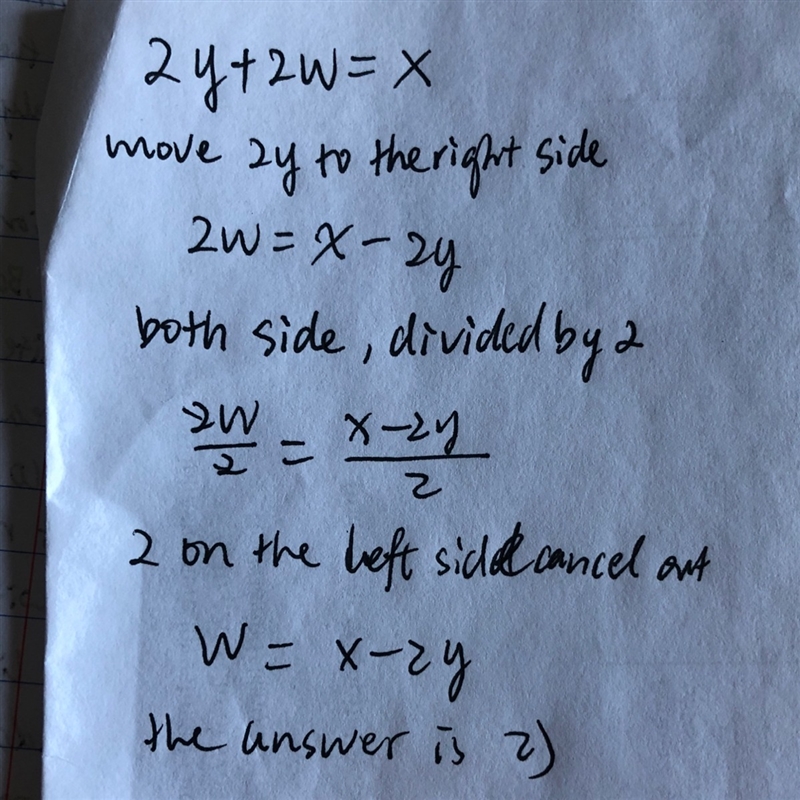 2y+2w=x
move 2y to the right side
2w=x-2y
both side, divided by 2
2w/2 = x-2y/2
2 on the left side cancel out
W = x-2y
the answer is 2)